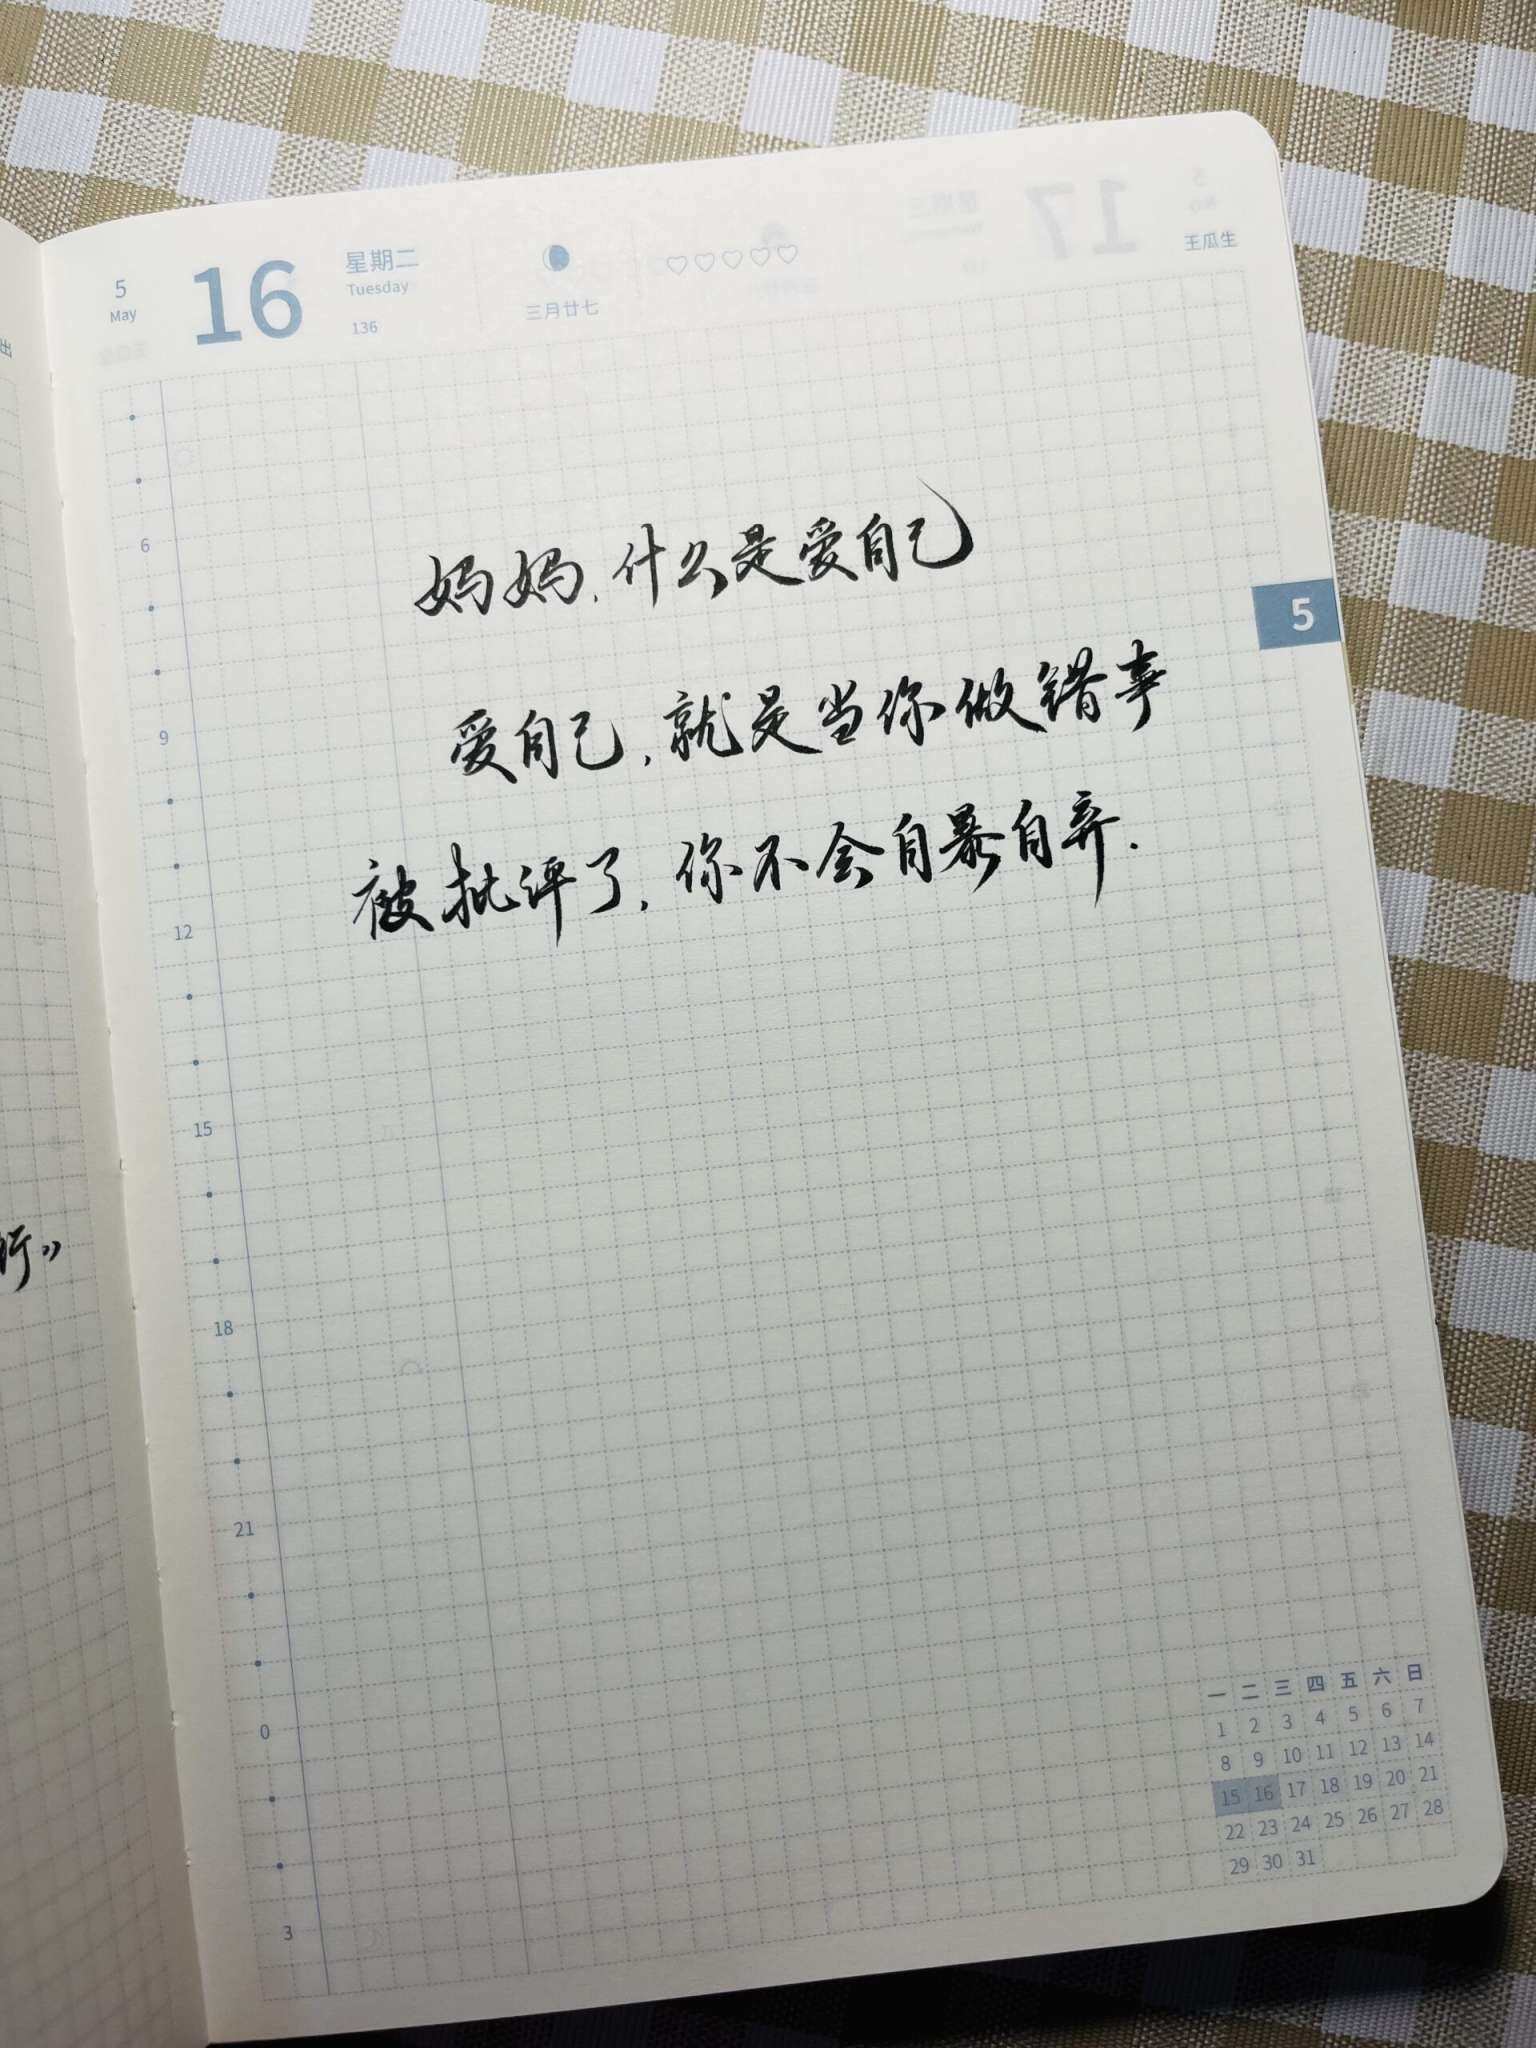 出
行》
5
May
16
星期二
Tuesday
136
三月廿七
王瓜生
妈妈，什么是爱自己
爱自己，就是当你做错事
被批评了，你不会自暴自弃.
5
6
9
12
15
18
21
0
3
一 二 三 四 五 六 日
1 2 3 4 5 6 7
8 9 10 11 12 13 14
15 16 17 18 19 20 21
22 23 24 25 26 27 28
29 30 31